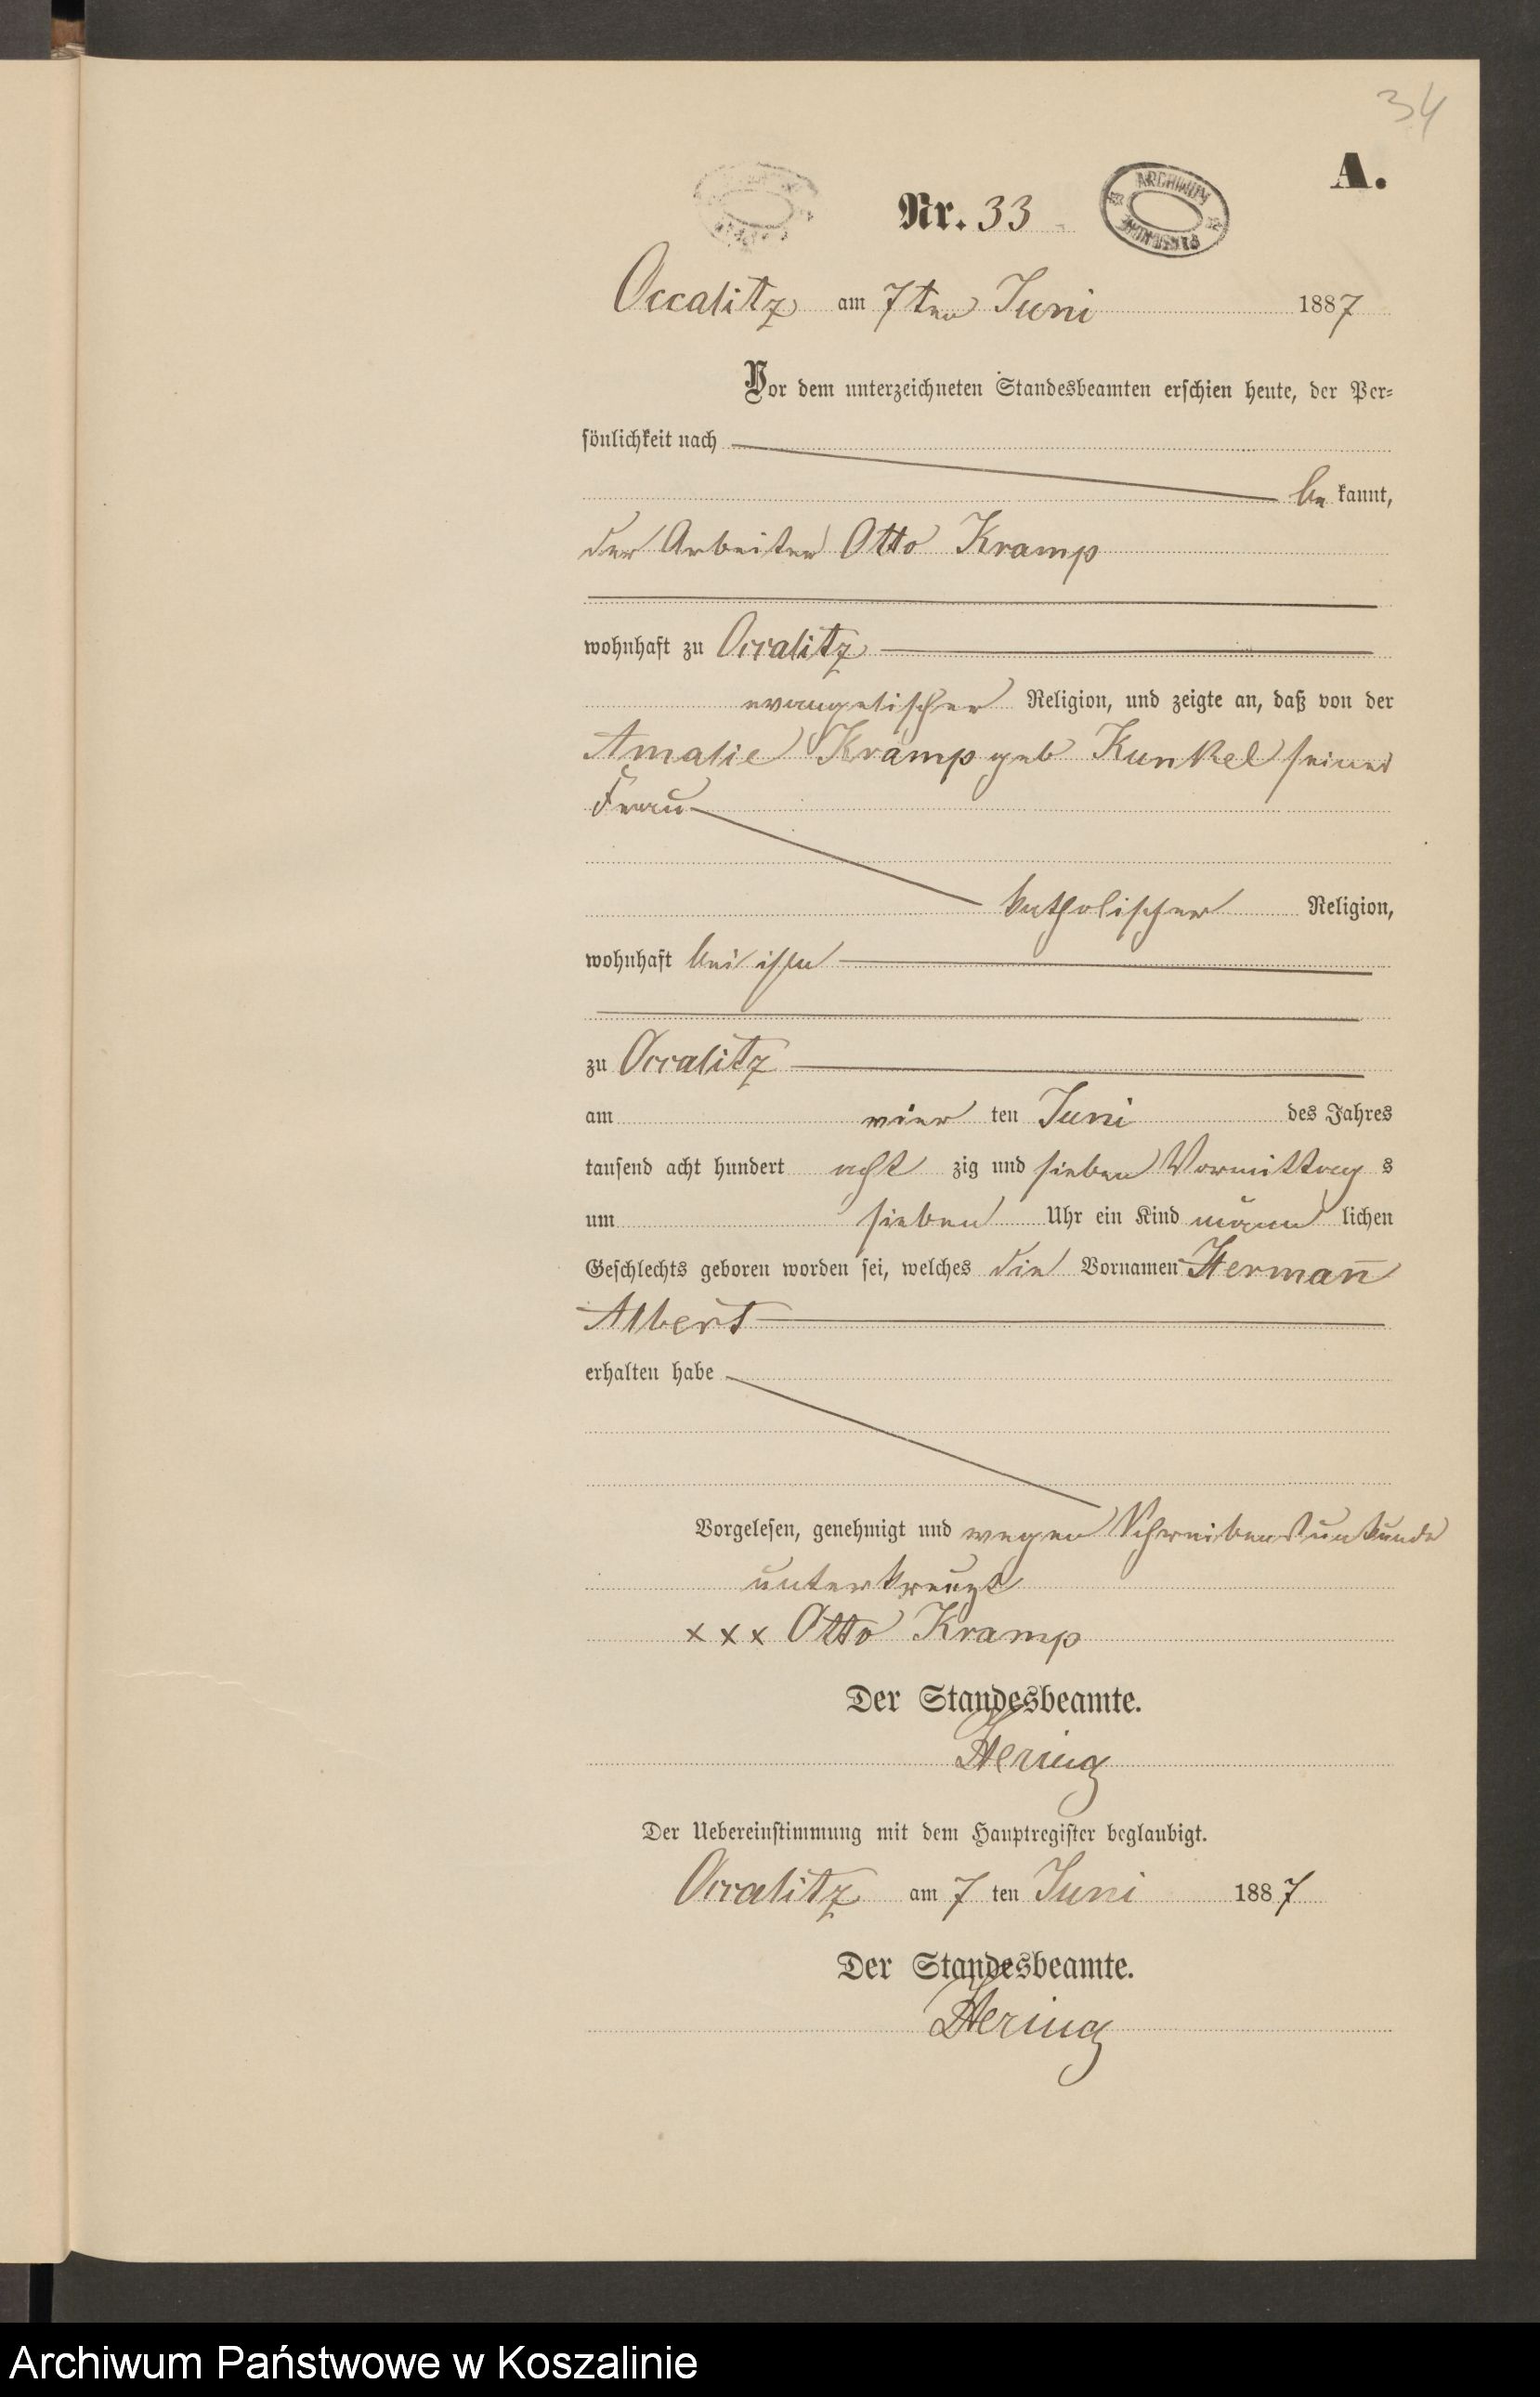 34
A.
Nr. 33
ARCHIWUM
Occalitz am 7ten Juni 1887
Vor dem unterzeichneten Standesbeamten erschien heute, der Per-
sönlichkeit nach
be kannt,
der Arbeiter Otto Kramp
wohnhaft zu Occalitz
evangelischer Religion, und zeigte an, daß von der
Amalie Kramp geb Kunkel seiner
Frau
katholischer Religion,
wohnhaft bei ihm
zu Occalitz
am vier ten Juni des Jahres
tausend acht hundert acht zig und sieben Vormittag s
um sieben Uhr ein Kind männ lichen
Geschlechts geboren worden sei, welches die Vornamen Herman̄
Albert
erhalten habe
Vorgelesen, genehmigt und wegen Schreibensunkunde
unterkreuzt
xxx Otto Kramp
Der Standesbeamte.
Hering
Der Uebereinstimmung mit dem Hauptregister beglaubigt.
Occalitz am 7 ten Juni 1887
Der Standesbeamte.
Hering
Archiwum Państwowe w Koszalinie